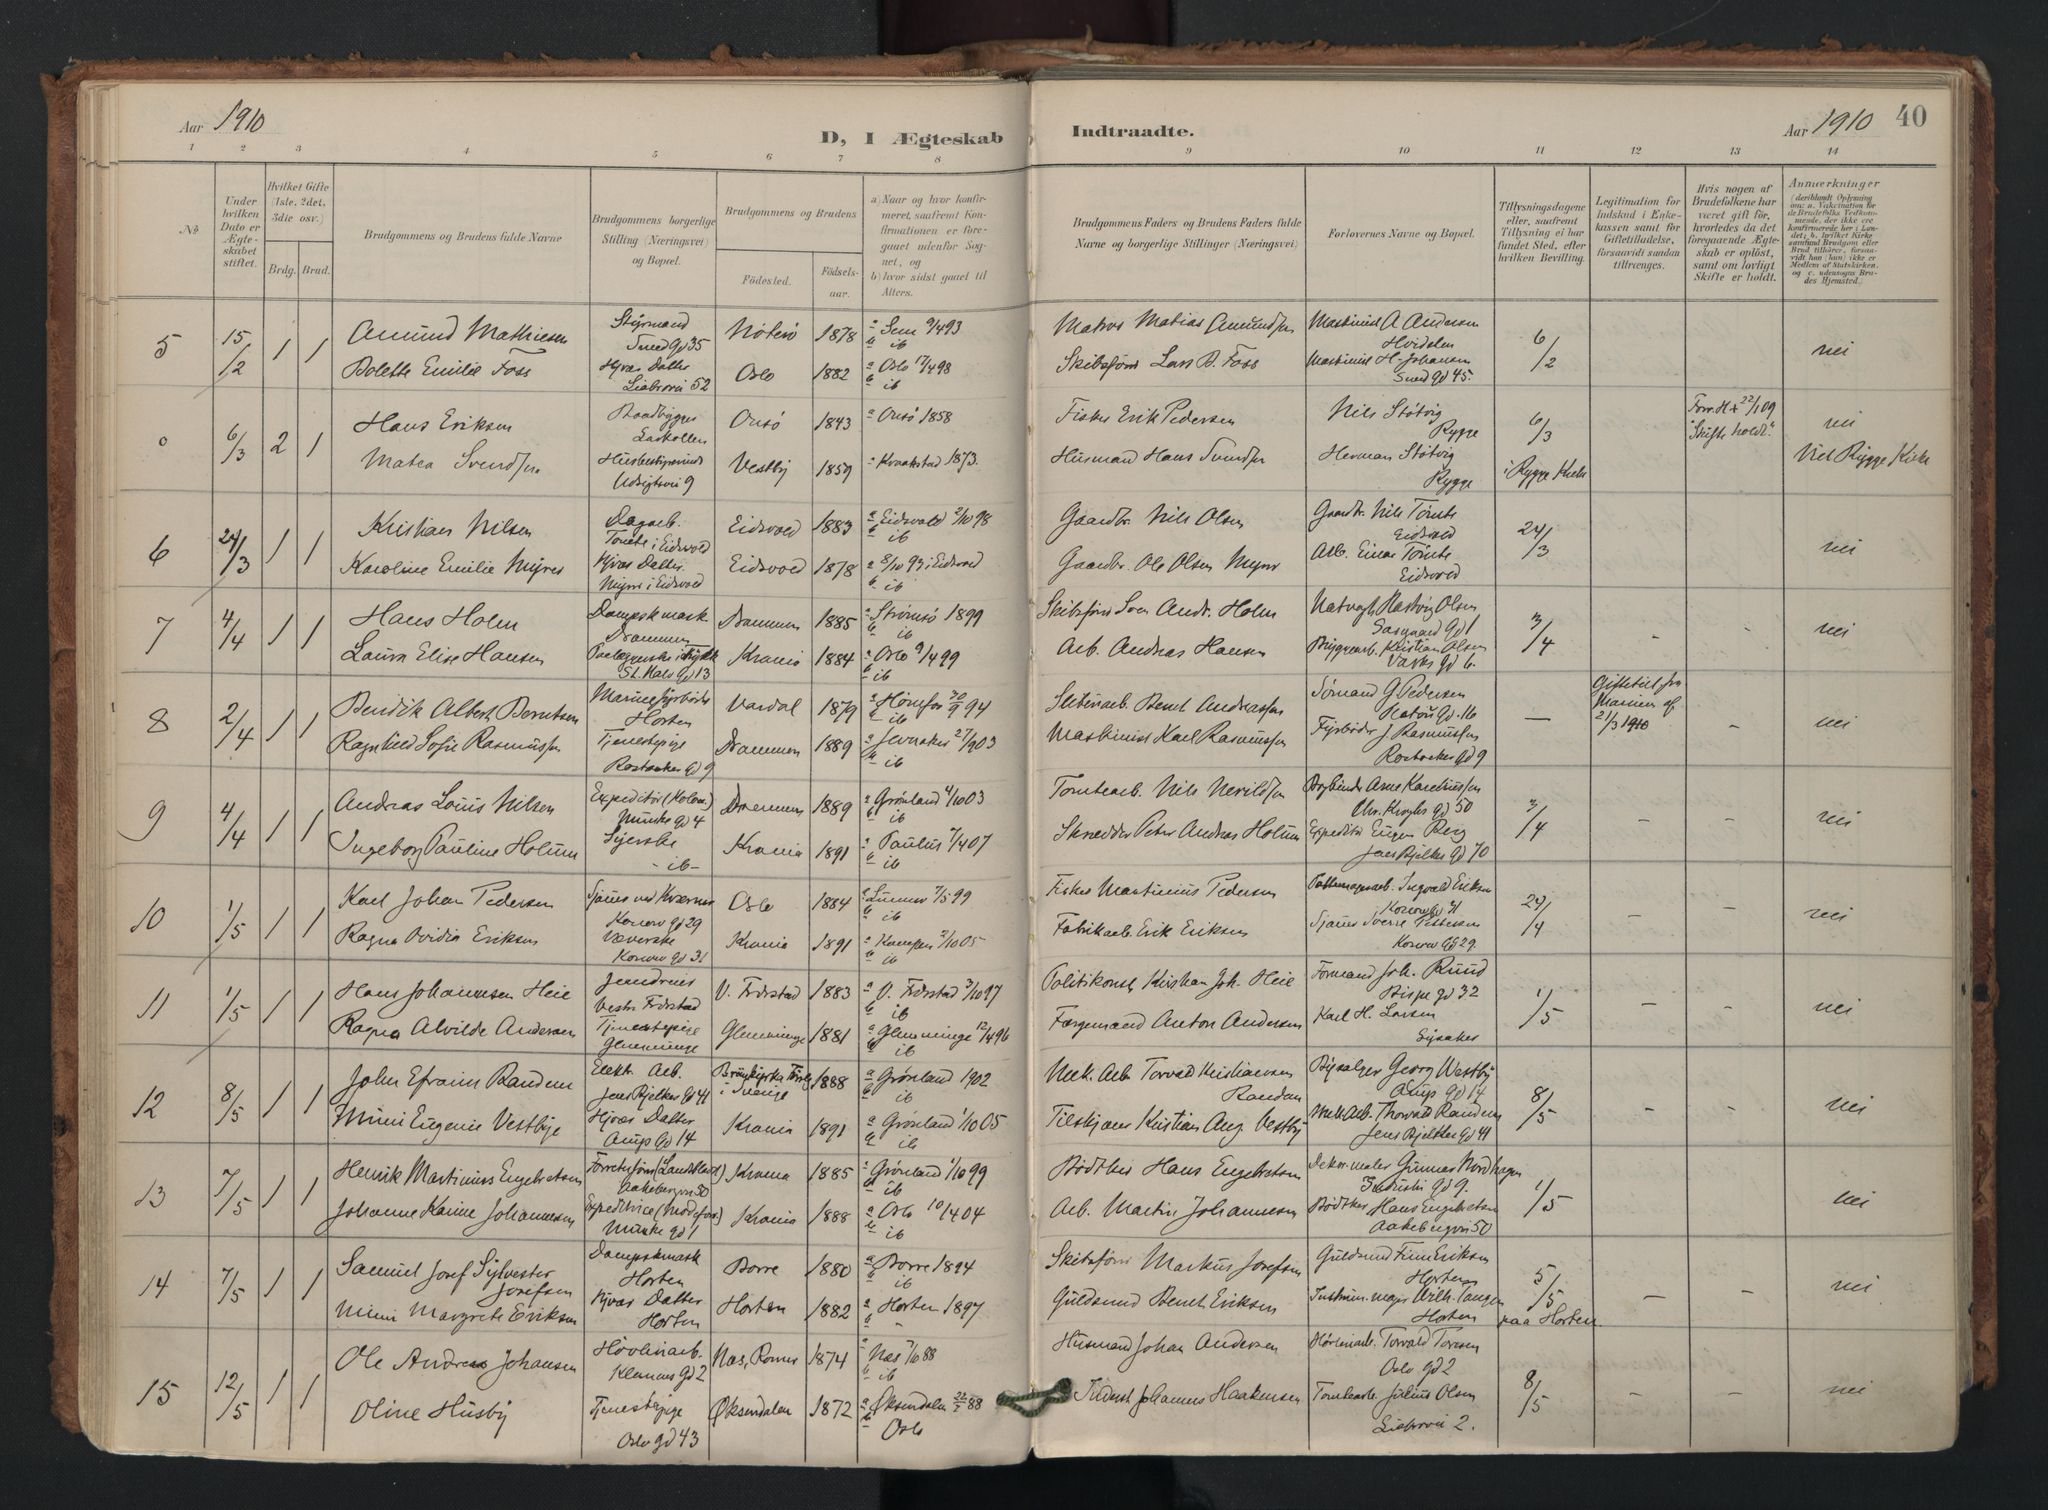 Aar 1910
D, I Ægteskab
Indtraadte.
Aar 1910
40
1 2 3 4 5 6 7 8 9 10 11 12 13 14
№
Under hvilken Dato er Ægteskabet stiftet.
Hvilket Gifte (1ste, 2det, 3die osv.)
Brdg. Brud.
Brudgommens og Brudens fulde Navne
Brudgommens borgerlige Stilling (Næringsvei) og Bopæl.
Brudgommens og Brudens
Fødested.
Fødselsaar.
a) Naar og hvor konfirmeret, saafremt Konfirmationen er foregaaet udenfor Sognet, og
b) hvor sidst gaaet til Alters.
Brudgommens Faders og Brudens Faders fulde Navne og borgerlige Stillinger (Næringsvei)
Forlovernes Navne og Bopæl.
Tillysningsdagene eller, saafremt Tillysning ei har fundet Sted, efter hvilken Bevilling.
Legitimation for Indskud i Enkekassen samt for Giftetilladelse, forsaavidt saadan tiltrænges.
Hvis nogen af Brudefolkene har været gift før, hvorledes da det foregaaende Ægteskab er opløst, samt om lovligt Skifte er holdt.
Anmærkninger (deriblandt Oplysning om: a. Vakcination for de Brudefolks Vedkommende, der ikke ere konfirmerede her i Landet; b. hvilket Kirkesamfund Brudgom eller Brud tilhører, forsaavidt han (hun) ikke er Medlem af Statskirken, og c. udensogns Brudes Hjemsted.)
5 15/2 1 1 Amund Mathiesen Styrmand Nøterø 1878 a Sem 9/4 93 b ib Matros Matias Amundsen Maskinist A Andersen Hvidsten 6/2 nei
Bolette Emilie Foss Hjvær. Datter Liabrovei 52 Oslo 1882 a Oslo 17/4 98 b ib Skibsfører Lars B. Foss Maskinist H. Johansen 45.
0 6/3 2 1 Hans Eriksen Baadbygger Larkollen Onsø 1843 a Onsø 1858 Fisker Erik Pedersen Nils Støtvig Rygge 6/3 Forr. H + 22/1 09 "Skifte holdt." nei
Matea Svendsen Husbestyrerinde Udsigtsvei 9 Vestby 1859 a Kraakstad 1873. Husmand Hans Svendsen Herman Støtvig Rygge i Rygge Kirke Viet i Rygge Kirke
6 24/3 1 1 Kristian Nilsen Dagarb. Tømte i Eidsvold Eidsvold 1883 a Eidsvold 2/10 98 b ib Gaardbr. Nils Olsen Gaardbr. Nils Tømte Eidsvold 24/3 nei
Karoline Emilie Myrer Hjvær. Datter. Myrer i Eidsvold Eidsvold 1878 a 8/10 93 i Eidsvold b ib Gaardbr. Ole Olsen Myrer Arb. Einar Tømte Eidsvold
7 4/4 1 1 Hans Holm Dampsk. mask Drammen Drammen 1885 a Strømsø 1899 b ib Skibsfører Andr. Holm Olsen gd 1 3/4 - - nei
Laura Elise Hansen St. Hals gd 13 Krania 1884 a Oslo 9/4 99 b ib Arb. Andreas Hansen Bryggearb. Kristian Olsen gd 6.
8 2/4 1 1 Bendik Albert Berntsen Horten Vardal 1879 a Hønefos 30/9 94 b ib Bernt Andreassen Sømand G Pedersen gd. 16 — Giftetil. fra Marinen af 21/3 1910 - nei
Ragnhild Sofie Rasmussen Tjenestepige Rostocker gd 9 Drammen 1889 a Jevnaker 27/9 03 b ib Maskinist Karl Rasmussen Fyrbøder J Rasmussen Rostocker gd 9
9 4/4 1 1 Andreas Louis Nilsen Expeditør (Kolon.) Munke gd 4 Drammen 1889 a Grønland 4/10 03 b ib Tomtearb. Nils Bogbinder Arne Karelinssen Chr. Kroghs gd 50 3/4 - - nei
Ingeborg Pauline Holum Syerske - ib - Krania 1891 a Paulus 7/4 07 b ib Skrædder Peter Andreas Holum Expeditør Eugen Berg Jens Bjelkes gd 70
10 1/5 1 1 Karl Johan Pedersen Konows gd 29 Oslo 1884 a Lunner 7/5 99 b ib Fisker Martinius Pedersen Ingvald Eriksen Konows gd 31 24/4 - - nei
Ragna Ovidia Eriksen Væverske Konows gd 31 Krania 1891 a Kampen 2/10 05 b ib Fabrikarb. Erik Eriksen Sjauer Sverre Pettersen Konows gd 29.
11 1/5 1 1 Hans Johannesen Heie Vestre Fredrstad V. Fredrstad 1883 a V. Fredrstad 3/10 97 b ib Politikonst. Kristian Joh. Heie Formand Joh. Ruud Bispe gd 32 1/5 - - nei
Ragna Alvilde Andersen Tjenestepige Glemminge Glemminge 1881 a Glemminge 12/4 96 b ib Færgemand Anton Andersen Karl H. Larsen
12 8/5 1 1 John Efraim Randem Elektr. Arb. Jens Bjelkes gd 41 i Sverige 1888 a Grønland 1902 b ib Mek. Arb. Torvald Kristiansen Randem Bysælger Georg Vestby Arup gd 14 8/5 - - nei
Mimi Eugenie Vestbye Hjvær Datter Arups gd 14 Krania 1891 a Grønland 1/10 05 b ib Kristian Aug. Vestby Mek Arb. Thorvald Randem Jens Bjelkes gd 41
13 7/5 1 1 Henrik Martinius Engebretsen Aakebergvei 50 Krania 1885 a Grønland 1/10 99 b ib Bødtker Hans Engebretsen Dekor. maler Gunnar Nordhagen Industri gd 9. 1/5 nei
Johanne Karine Johannesen Expeditrice Munke gd 1 Krania 1888 a Oslo 10/4 04 b ib Arb. Martin Johannesen Bødtker Hans Engebretsen Aakebergvei 50
14 7/5 1 1 Samuel Josef Sylvester Josefsen Dampskmask Horten Borre 1880 a Borre 1894 b ib Skibsfører Markus Josefsen Guldsmed Finn Eriksen Horten 5/5 paa Horten - - nei
Mimi Margrete Eriksen Hjvær Datter Horten Horten 1882 a Horten 1897 Guldsmed Bernt Eriksen Instrum. major Wilh. Tangen Horten
15 12/5 1 1 Ole Andreas Johansen Høvleriarb. Klemets gd 2 Næs, Romer. 1874 a Næs 7/10 88 b ib Husmand Johan Andersen Høvleriarb. Torvald Toresen Oslo gd 2 8/5 - - nei
Oline Husby Tjenestepige Oslo gd 43 Øksendalen 1872 a Øksendalen 88 b Oslo Johannes Haakensen Tomtearb. Julius Olsen Liabrovei 2.